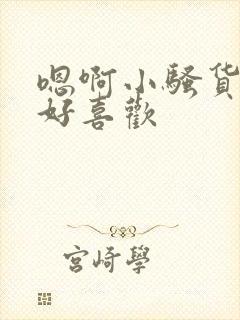 嗯啊小騷貨
好喜歡
宮崎學